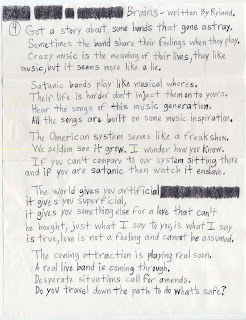 Brains - written By Ryland.
4 Got a story about some bands that gone astray.
Sometimes the band share their feelings when they play.
Crazy music is the meaning of their lives, they like
music, but it seems more like a lie.
Satanic bands play like musical whores.
Their life is harder don't inject them onto yours.
Hear the songs of this music generation.
All the songs are built on some music inspiration.
The American system seems like a freakshow.
We seldim see it grow. I wonder how yer know.
If you can't compare to our system sitting there
and if you are satanic then watch it enslave.
The world gives you artificial
it gives you superficial,
it gives you something else for a love that can't
be bought, just what I say to you, is what I say
is true, love is not a feeling and cannot be assumed.
The coming attraction is playing real soon.
A real live band is coming through.
Desperate situations call for amends.
Do you travel down the path to do what's safe?